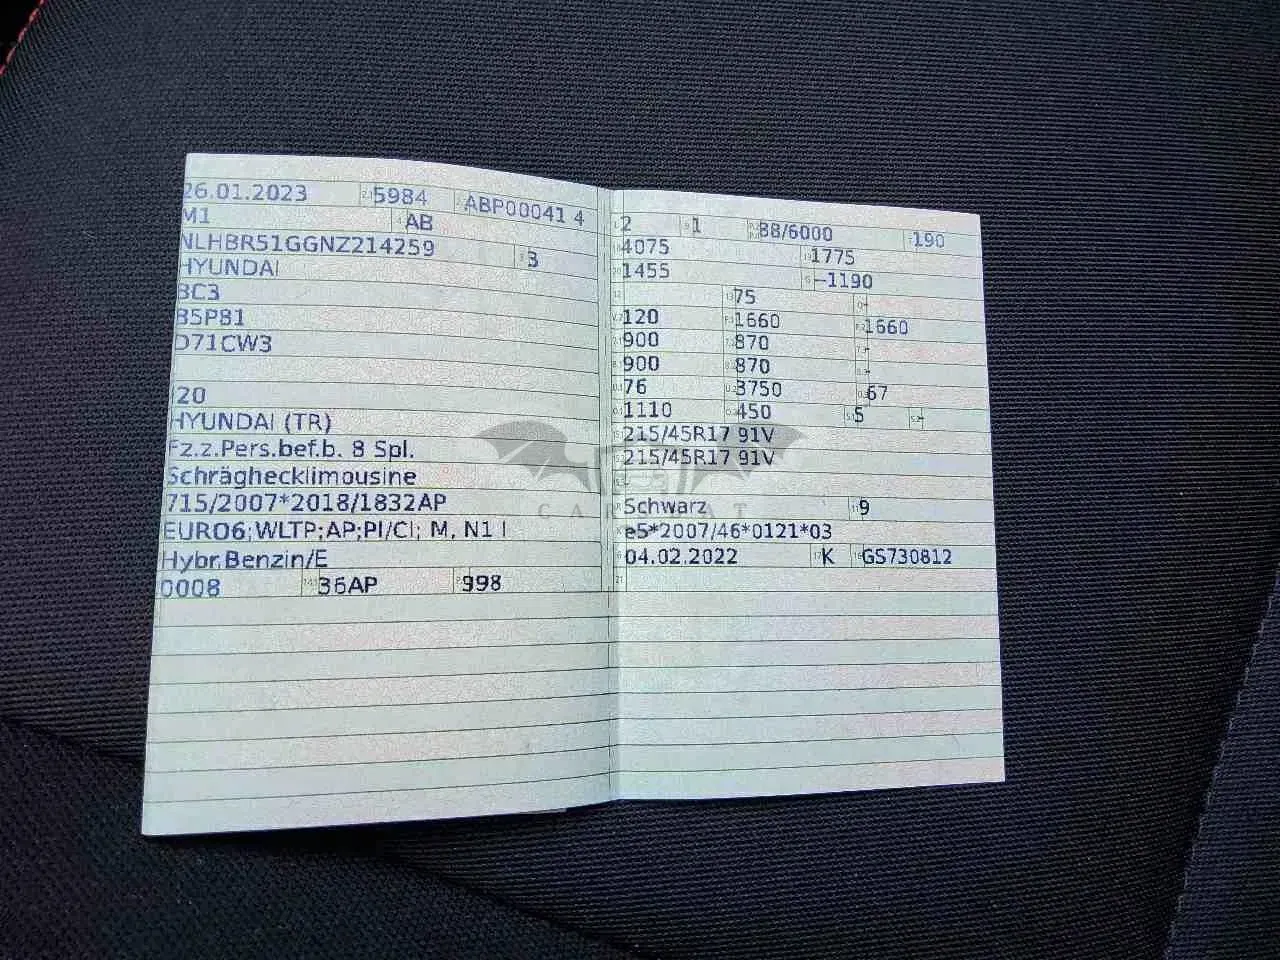 26.01.2023 5984 ABP00041 4
M1 AB
NLHBR51GGNZ214259 3
HYUNDAI
BC3
B5P81
D71CW3
I20
HYUNDAI (TR)
Fz.z.Pers.bef.b. 8 Spl.
Schräghecklimousine
715/2007*2018/1832AP
EURO6;WLTP;AP;PI/CI; M, N1 I
Hybr.Benzin/E
0008 36AP 998
2 1 88/6000 190
4075 1775
1455 —1190
75 -
120 1660 1660
900 870 -
900 870 -
76 3750 67
1110 450 5 -
215/45R17 91V
215/45R17 91V
-
Schwarz 9
CARSBAT
e5*2007/46*0121*03
04.02.2022 K GS730812
21